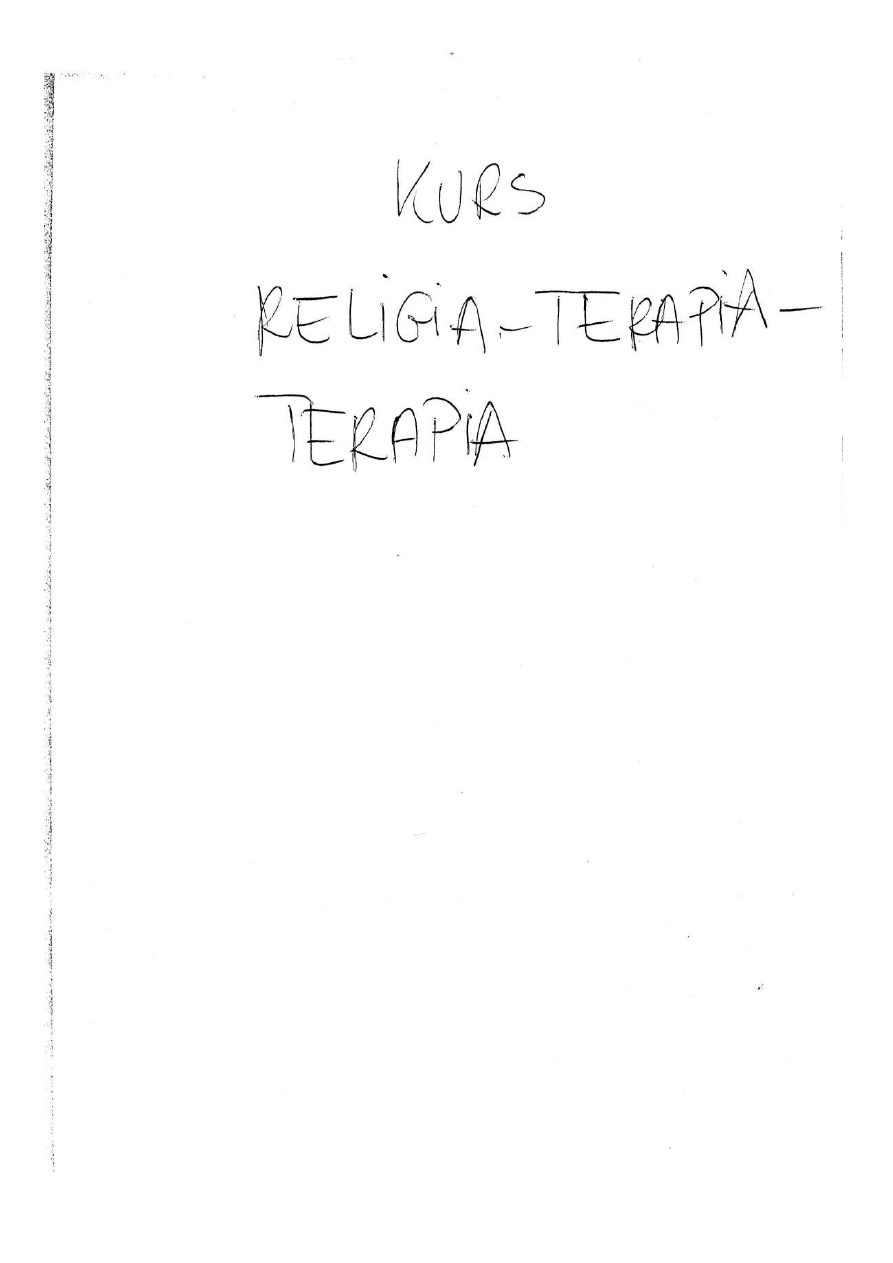 KURS
RELiGiA-TERAPiA-
TERAPiA